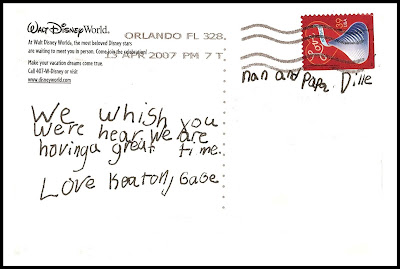 WALT DISNEY World.
At Walt Disney Worlds, the most beloved Disney stars
are waiting to meet you in person. Come join the celebration!
Make your vacation dreams come true.
Call 407-W-Disney or visit
www.disneyworld.com
ORLANDO FL 328.
13 APR 2007 PM 7 T
nan and Papa Dille
We whish you
were hear. We are
having a great time.
Love Keaton, Gabe